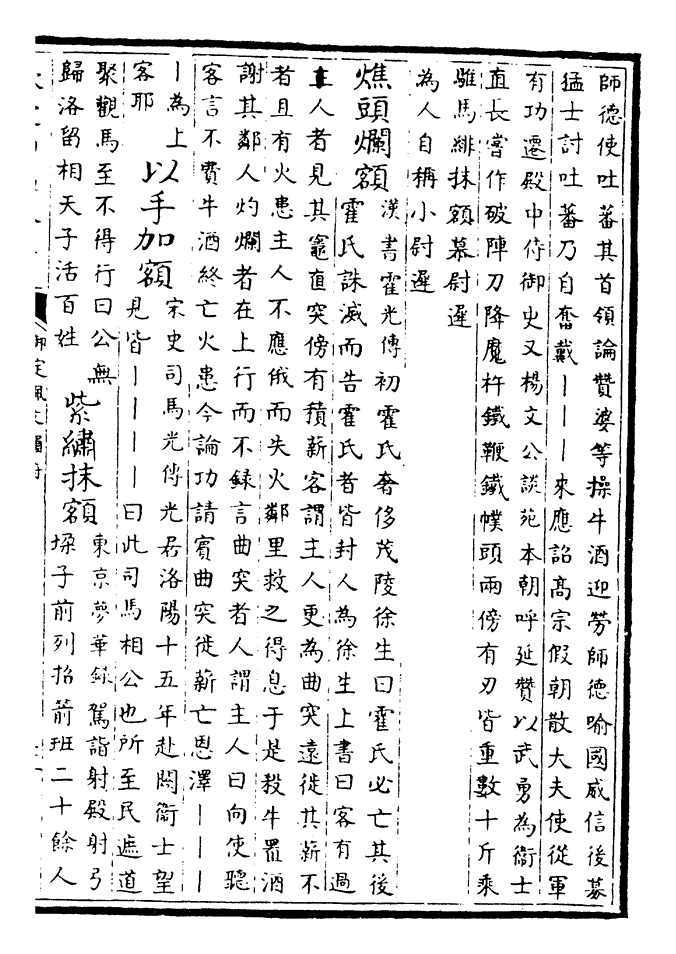 師德使吐蕃其首領論贊婆等操牛酒迎勞師德喻國威信後募
猛士討吐蕃乃自奮戴｜｜｜來應詔高宗假朝散大夫使從軍
有功遷殿中侍御史又楊文公談苑本朝呼延贊以武勇為衞士
直長嘗作破陣刀降魔杵鐵鞭鐵幞頭兩傍有刃皆重數十斤乘
騅馬緋抹額慕尉遲
為人自稱小尉遲
燋頭爛額
漢書霍光傳初霍氏奢侈茂陵徐生曰霍氏必亡其後
霍氏誅滅而告霍氏者皆封人為徐生上書曰客有過
主人者見其竈直突傍有積薪客謂主人更為曲突遠徙其薪不
者且有火患主人不應俄而失火鄰里救之得息于是殺牛置酒
謝其鄰人灼爛者在上行而不録言曲突者人謂主人曰向使聽
客言不費牛酒終亡火患今論功請賓曲突徙薪亡恩澤｜｜｜
｜為上
客耶
以手加額
宋史司馬光傳光居洛陽十五年赴闕衞士望
見皆｜｜｜｜曰此司馬相公也所至民遮道
聚觀馬至不得行曰公無
歸洛留相天子活百姓
紫繡抹額
東京夢華録駕詣射殿射弓
垛子前列招箭班二十餘人
御定佩文韻府